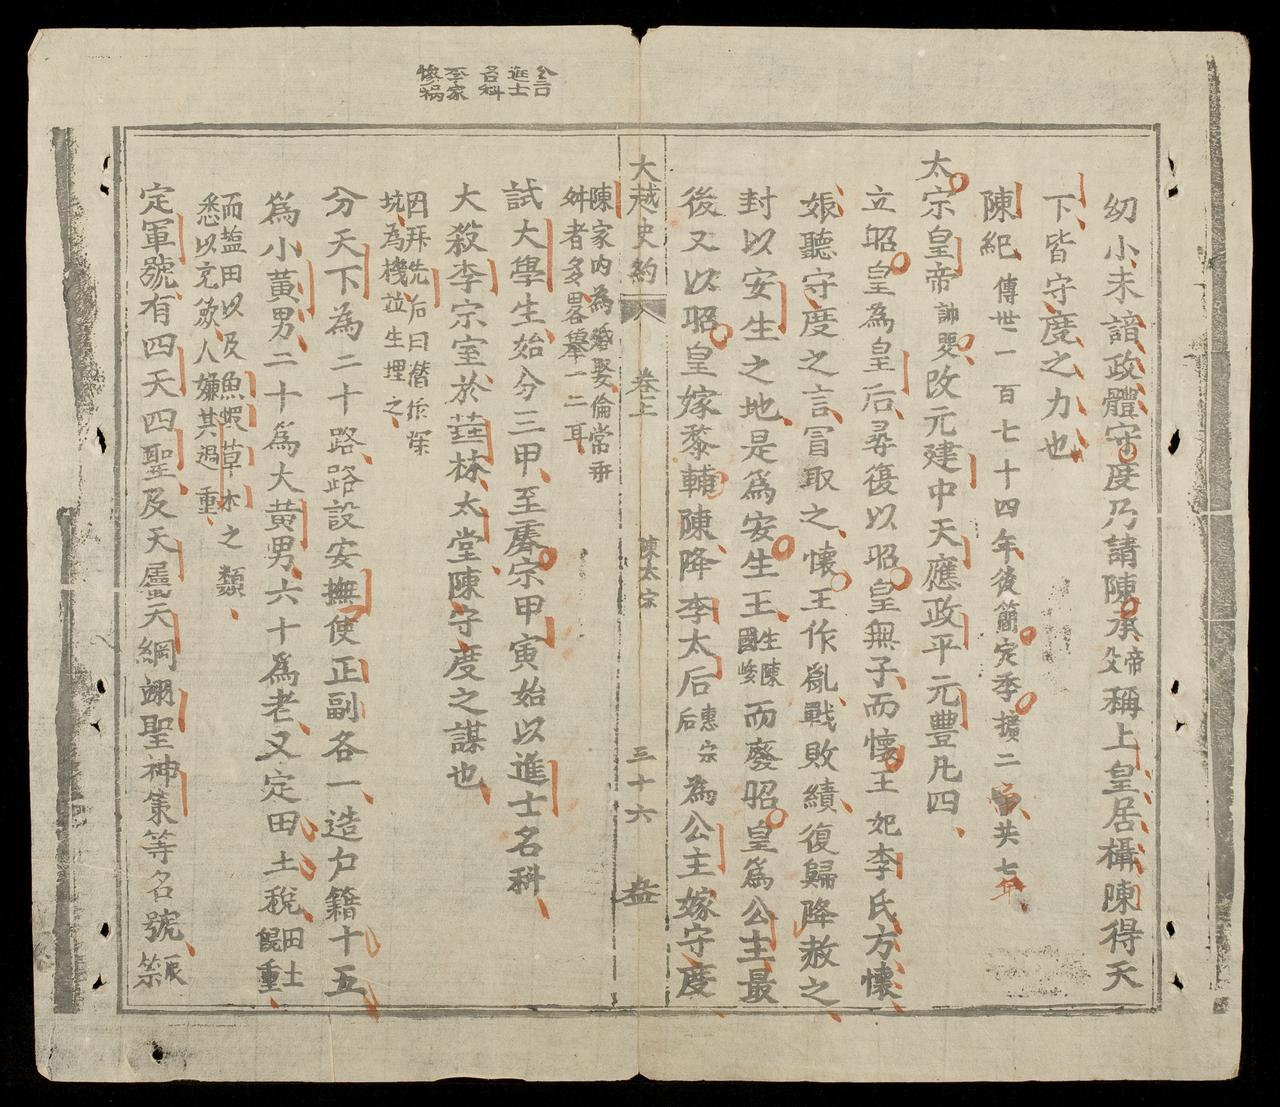 幼小未諳政體守度乃請陳承帝父稱上皇居攝陳得天
下皆守度之力也
陳紀傳世一百七十四年後簡定季擴二帝共七年
太宗皇帝諱煚改元建中天應政平元豐凡四
立昭皇為皇后尋復以昭皇無子而懷王妃李氏方懷
娠聽守度之言冒取之懷王作亂戰敗績復歸降赦之
封以安生之地是為安生王生陳國峻而廢昭皇為公主最
後又以昭皇嫁黎輔陳降李太后惠宗后為公主嫁守度
大越史約 卷上 陳太宗 三十六
陳家內為婚娶倫常乖
舛者多畧舉一二耳
試大學生始分三甲至睿宗甲寅始以進士名科
大殺李宗室於華林太堂陳守度之謀也
因拜先后曰潛作深
坑為機並生埋之
分天下為二十路路設安撫使正副各一造戶籍十五
為小黃男二十為大黃男六十為老又定田土稅田土既重
而盐田以及魚蝦草木之類
悉以充歛人嫌其過重
定軍號有四天四聖及天屬天綱翊聖神策等名號
仝三曰
進士
名科
李家
慘禍